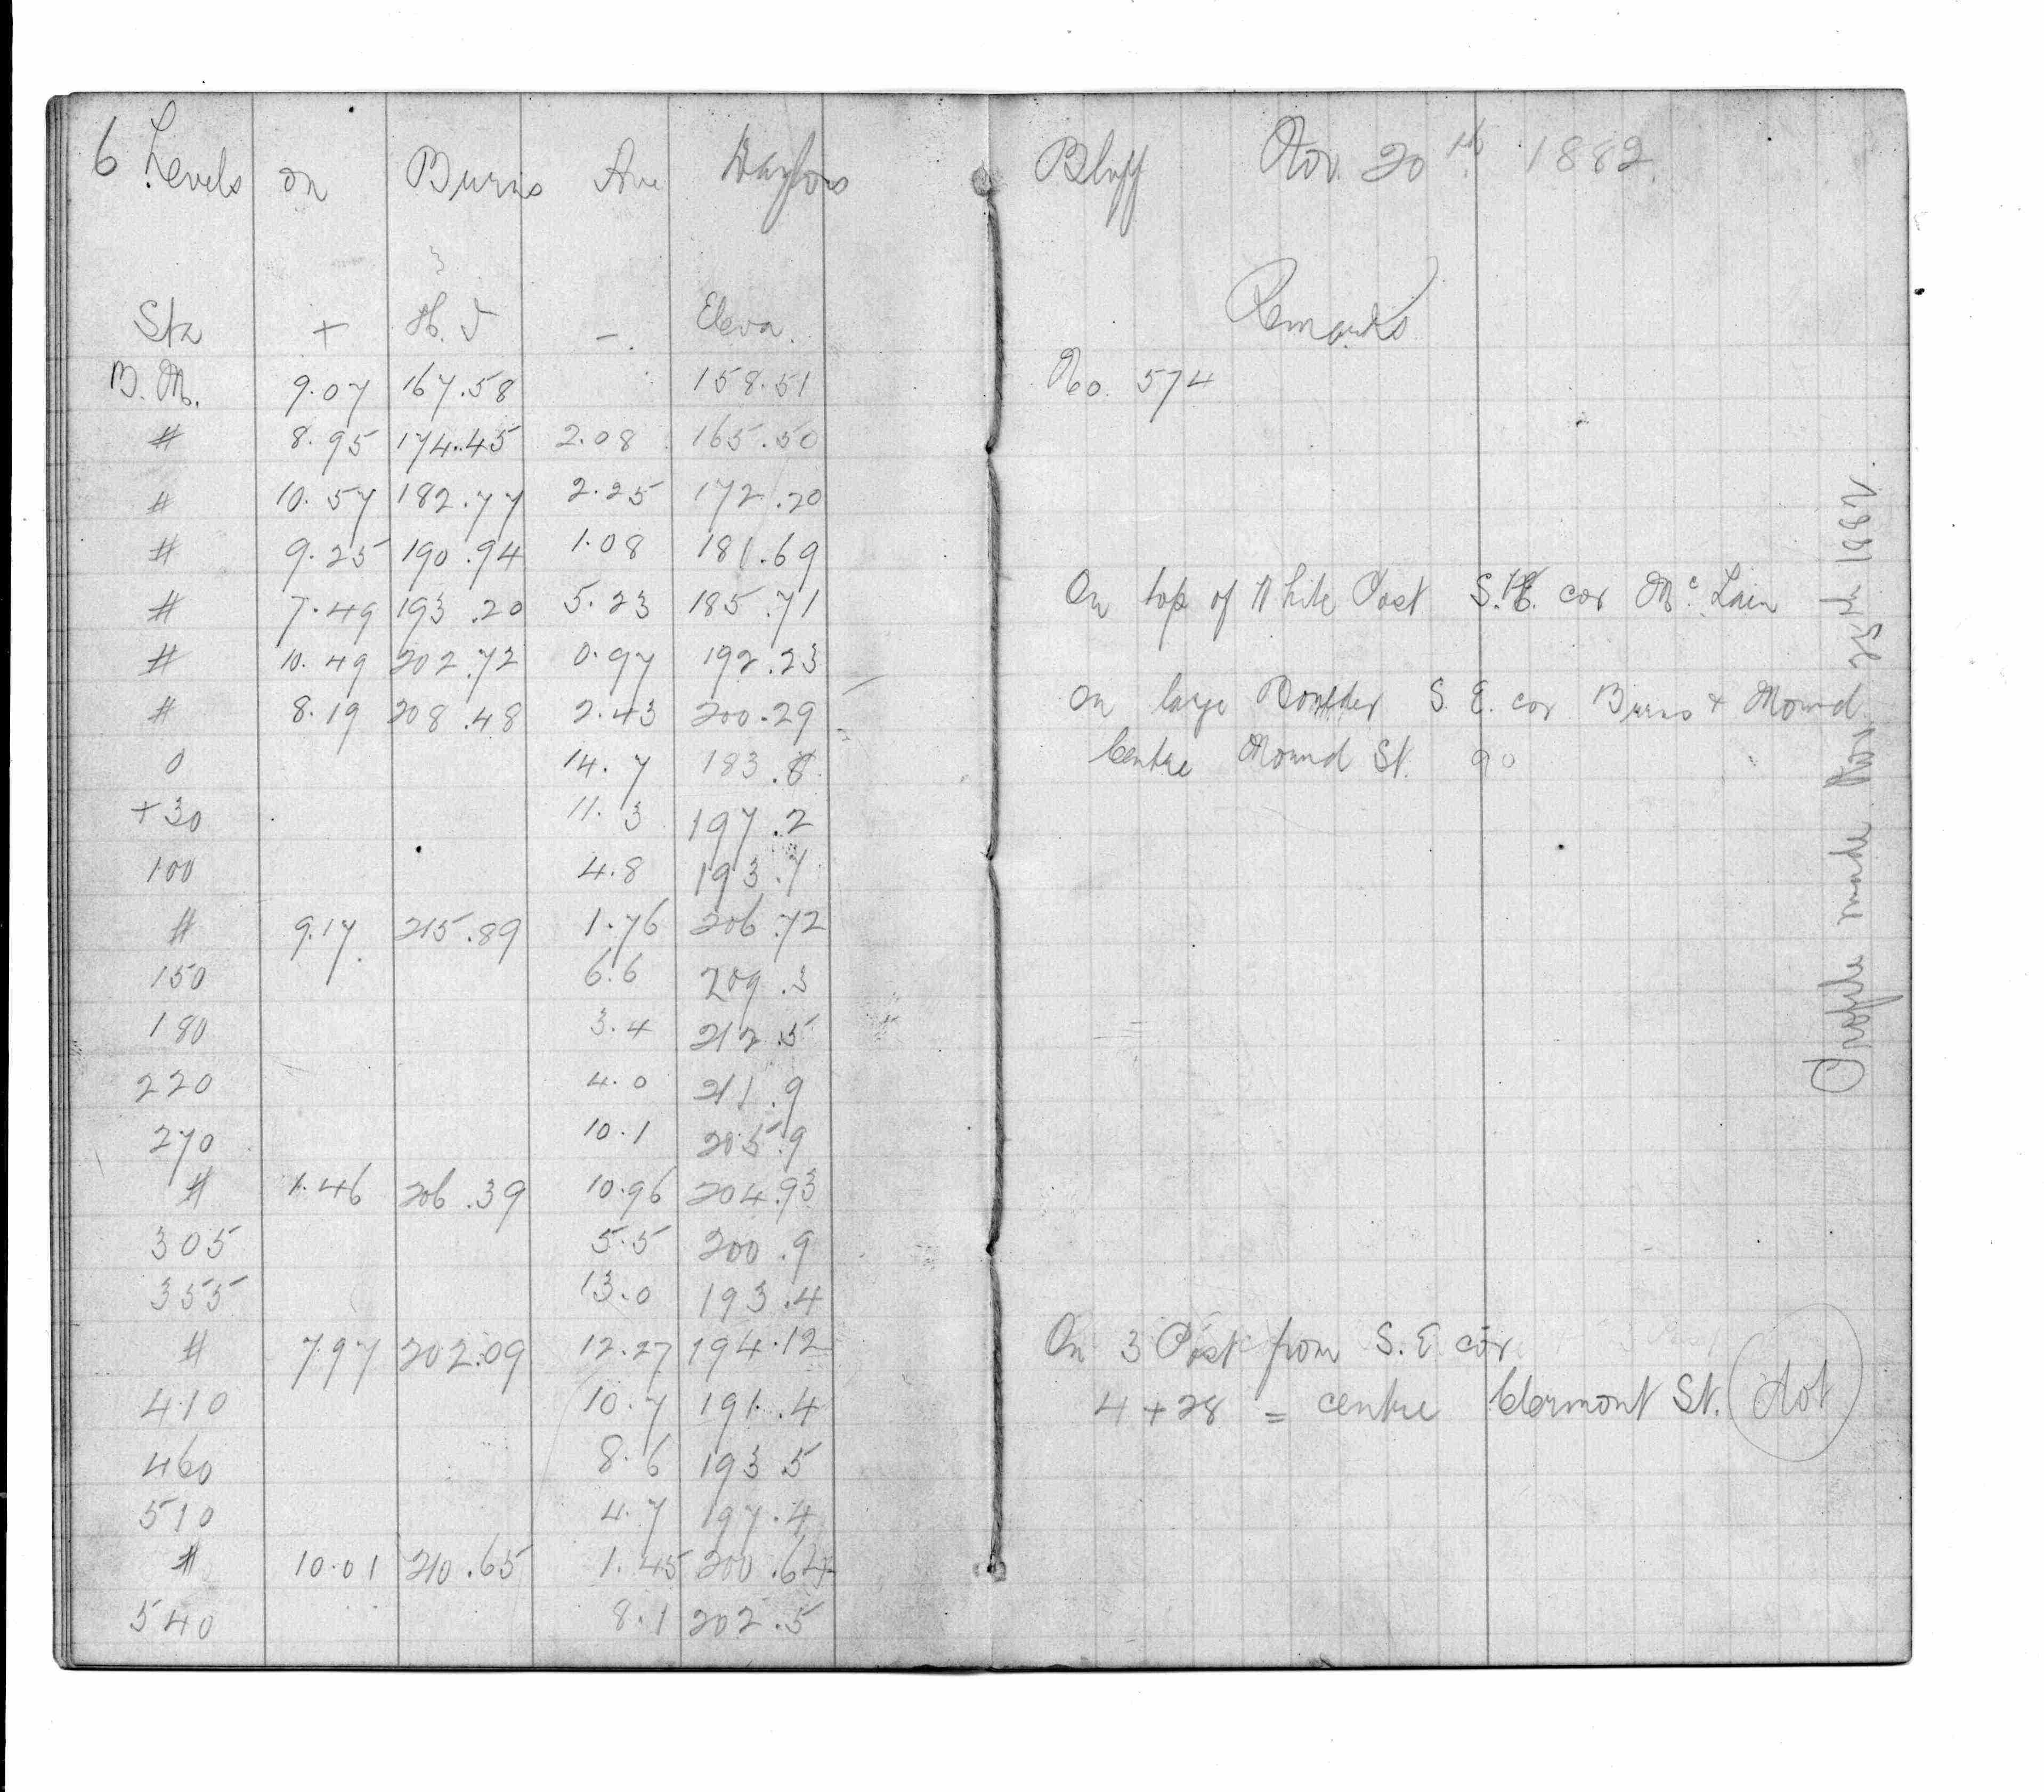 6 Levels on Burns Ave Daytons Bluff Nov. 20th 1882.
Remarks
Sta + H. I - Eleva.
B. M. 9.07 167.58 158.51 No. 574
# 8.95 174.45 2.08 165.50
# 10.57 182.77 2.25 172.20
# 9.25 190.94 1.08 181.69
# 7.49 193.20 5.23 185.71 On top of White Post S. E. cor Mc Lain
# 10.49 202.72 0.97 192.23
# 8.19 208.48 2.43 200.29 On large Boulder S. E. cor Burns + Mound
0 14.7 183.8 Centre Mound St. 90
+30 11.3 197.2
100 4.8 193.7
# 9.17 215.89 1.76 206.72
150 6.6 209.3
180 3.4 212.5
220 4.0 211.9
270 10.1 205.9
# 1.46 206.39 10.96 204.93
305 5.5 200.9
355 13.0 193.4
# 7.97 202.09 12.27 194.12 On 3 Post from S. E cor
410 10.7 191.4 4+28 = centre Clermont St. Not
460 8.6 193 5
510 4.7 197.4
# 10.01 210.65 1.45 200.64
540 8.1 202.5
Profile made Nov 25th 1882.